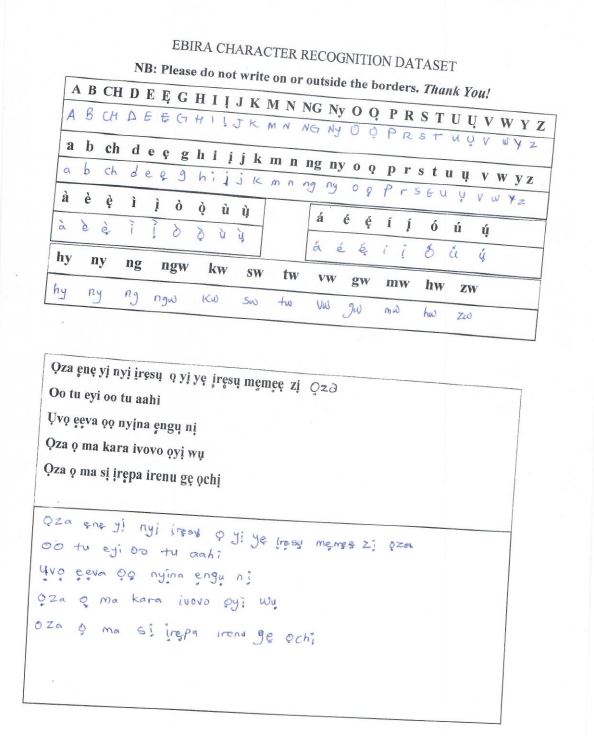 EBIRA CHARACTER RECOGNITION DATASET
NB: Please do not write on or outside the borders. Thank You!
A B CH D E Ẹ G H I Ị J K M N NG Ny O Ọ P R S T U Ụ V W Y Z
A B CH D E Ẹ G H I Ị J K M N NG Ny O Ọ P R S T U Ụ V W Y Z
a b ch d e ẹ g h i ị j k m n ng ny o ọ p r s t u ụ v w y z
a b ch d e ẹ g h i ị j k m n ng ny o ọ p r s t u ụ v w y z
à è ẹ̀ ì ị̀ ò ọ̀ ù ụ̀
à è ẹ̀ ì ị̀ ò ọ̀ ù ụ̀
á é ẹ́ í ị́ ó ú ụ́
á é ẹ́ í ị́ ó ú ụ́
hy ny ng ngw kw sw tw vw gw mw hw zw
hy ny ng ngw kw sw tw vw gw mw hw zw
Ọza ẹnẹ yị nyị ịrẹsụ ọ yị yẹ ịrẹsụ mẹmẹẹ zị Ọza
Oo tu eyi oo tu aahi
Ụvọ ẹẹva ọọ nyịna ẹngụ nị
Ọza ọ ma kara ivovo ọyị wụ
Ọza ọ ma sị ịrẹpa irenu gẹ ọchị
Ọza ẹnẹ yị nyị ịrẹsụ ọ yị yẹ ịrẹsụ mẹmẹẹ zị ọza
oo tu eyi oo tu aahi
Ụvọ ẹẹva ọọ nyịna ẹngụ nị
Ọza ọ ma kara ivovo ọyị wụ
Oza ọ ma sị ịrẹpa irenu gẹ ọchị